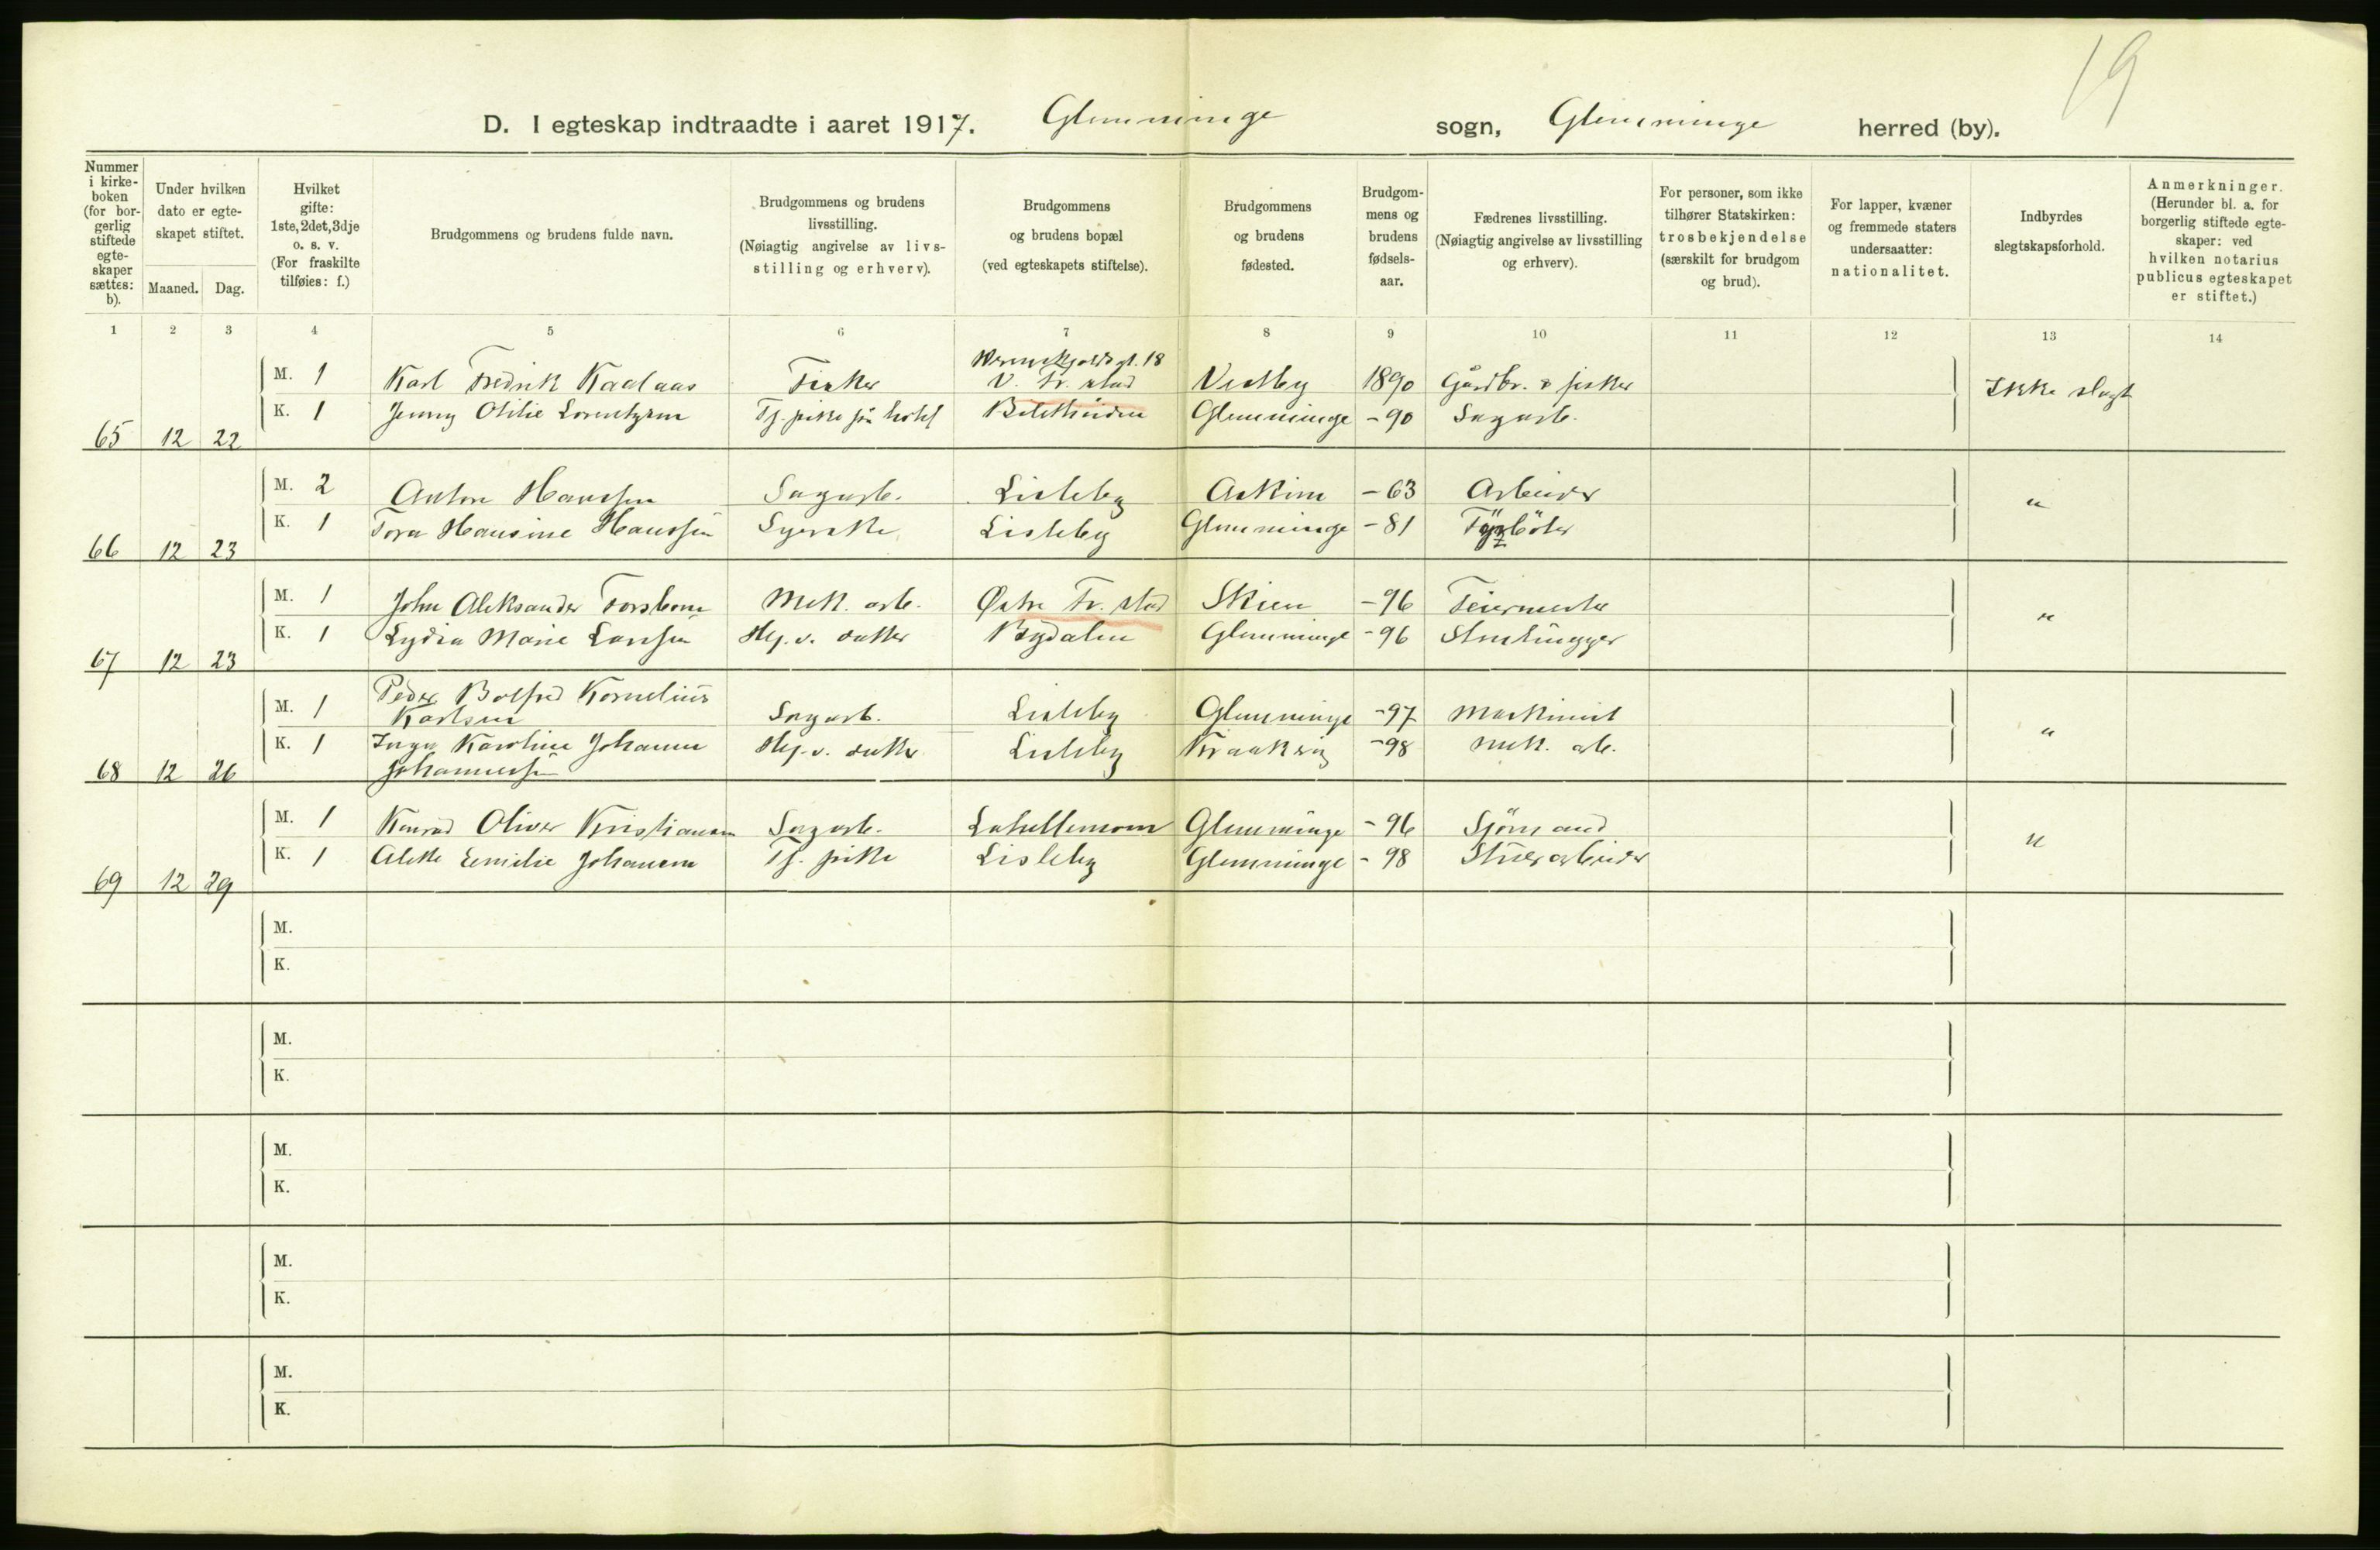 19
D. I egteskap indtraadte i aaret 1917. Glemminge sogn, Glemminge herred (by).
Nummer i kirkeboken (for borgerlig stiftede egteskaper sættes: b).
Under hvilken dato er egteskapet stiftet.
Maaned. Dag.
Hvilket gifte: 1ste, 2det, 3dje o. s. v. (For fraskilte tilføies: f.)
Brudgommens og brudens fulde navn.
Brudgommens og brudens livsstilling. (Nøiagtig angivelse av livsstilling og erhverv).
Brudgommens og brudens bopæl (ved egteskapets stiftelse).
Brudgommens og brudens fødested.
Brudgommens og brudens fødselsaar.
Fædrenes livsstilling. (Nøiagtig angivelse av livsstilling og erhverv).
For personer, som ikke tilhører Statskirken: trosbekjendelse (særskilt for brudgom og brud).
For lapper, kvæner og fremmede staters undersaatter: nationalitet.
Indbyrdes slegtskapsforhold.
Anmerkninger. (Herunder bl. a. for borgerlig stiftede egteskaper: ved hvilken notarius publicus egteskapet er stiftet.)
1 2 3 4 5 6 7 8 9 10 11 12 13 14
M. 1 Karl Fredrik Kadlaas Fisker V. Fr.stad Vestby 1890 Gårdbr. & fisker Ikke slegt
K. 1 Jenny Otilie Lorentzen Tj. pike på hotel Glemminge -90 Sagarb.
65 12 22
M. 2 Anton Hanssen Sagarb. Lisleby Askim -63 Arbeider "
K. 1 Tora Hansine Hanssen Syerske Lisleby Glemminge -81 Fyrböter
66 12 23
M. 1 John Aleksander Forsbom Mek. arb. Østre Fr.stad Skien -96 Feiermester "
K. 1 Lydia Marie Larssen Hj. v. datter Bydalen Glemminge -96 Stenhugger
67 12 23
M. 1 Peder Botfred Kornelius
Karlsen Sagarb. Lisleby Glemminge -97 Maskinist "
K. 1 Inga Karoline Johanne Hj. v. datter Lisleby Kraakerøy -98 Mek. arb.
Johannessen
68 12 26
M. 1 Konrad Oliver Kristiansen Sagarb. Lahellemoen Glemminge -96 Sjömand "
K. 1 Alette Emilie Johansen Tj. pike Lisleby Glemminge -98 Stuerarbeider
69 12 29
M.
K.
M.
K.
M.
K.
M.
K.
M.
K.